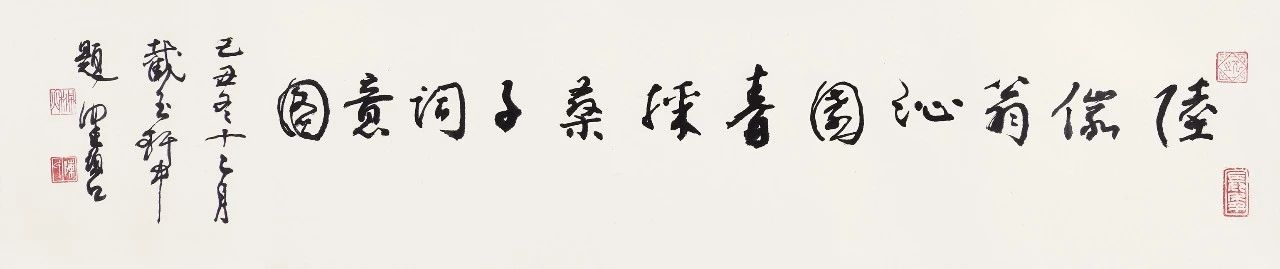 陸儼翁沁園春採桑子詞意圖
己丑冬十二月
截玉軒中
題 健碧